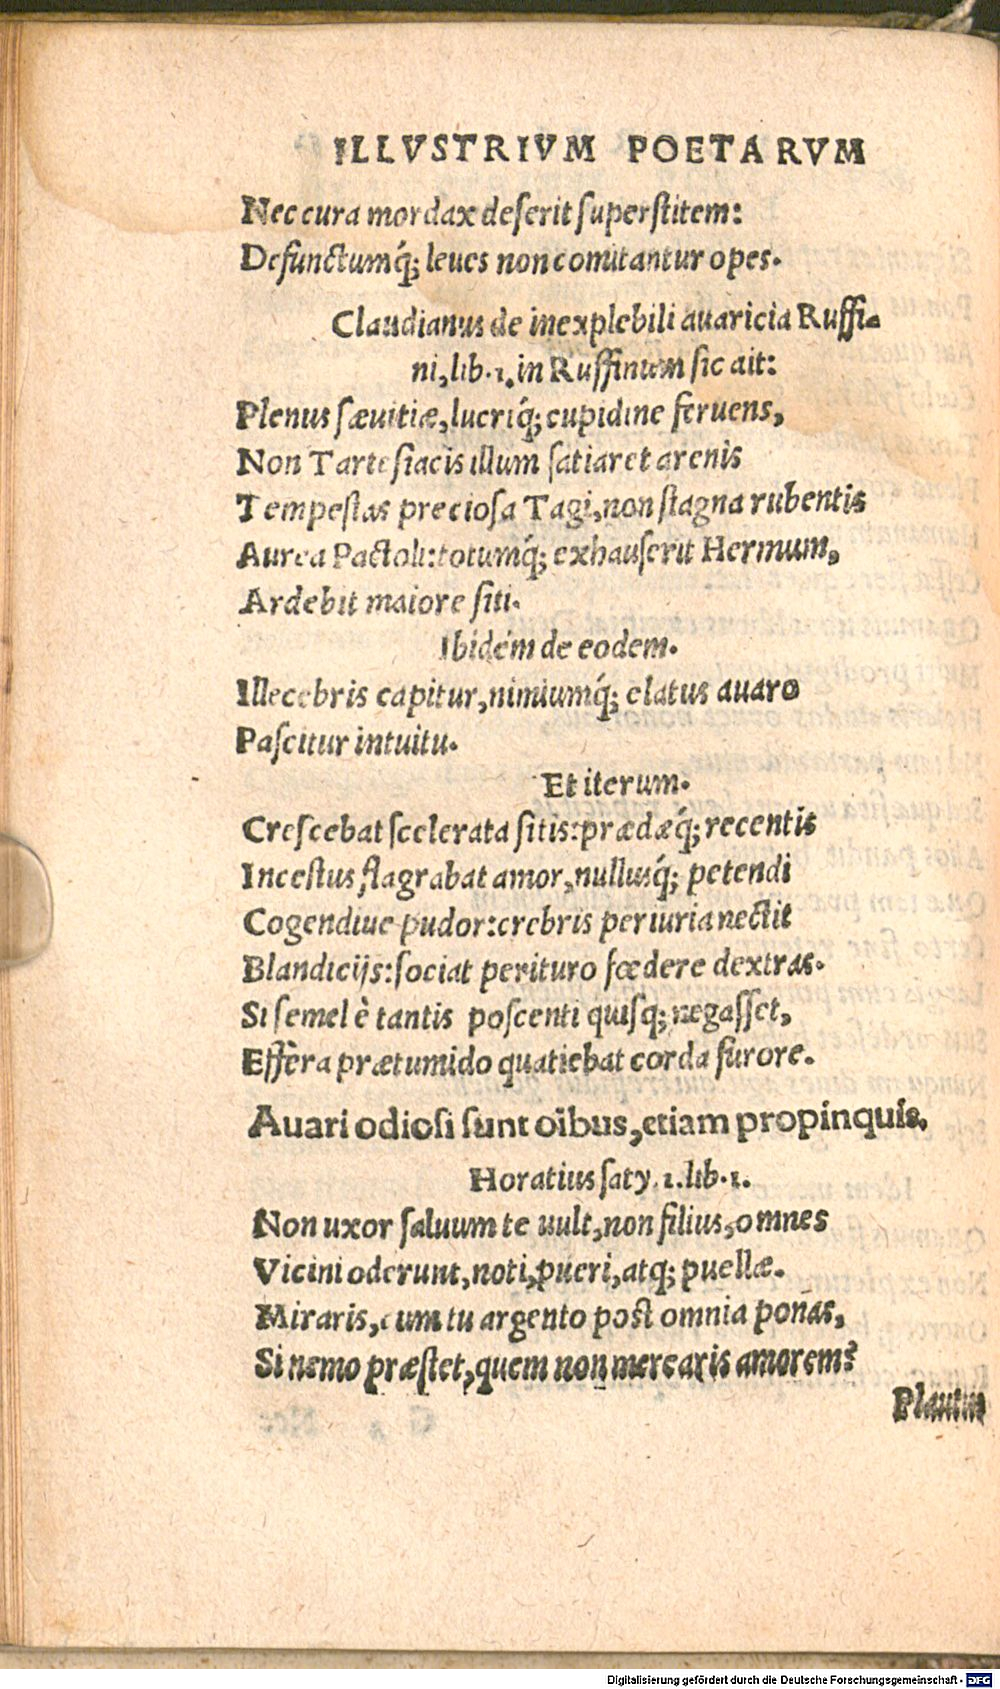 ILLVSTRIVM POETARVM
Nec cura mordax deſerit ſuperſtitem:
Defunctumq́; leues non comitantur opes.
Claudianus de inexplebili auaricia Ruffi-
ni, lib. 1. in Ruffinum ſic ait:
Plenus ſæuitiæ, lucriq́; cupidine feruens,
Non Tarteſiacis illum ſatiaret arenis
Tempeſtas precioſa Tagi, non ſtagna rubentis
Aurea Pactoli: totumq́; exhauſerit Hermum,
Ardebit maiore ſiti.
Ibidém de eodem.
Illecebris capitur, nimiumq́; elatus auaro
Paſcitur intuitu.
Et iterum.
Creſcebat ſcelerata ſitis: prædæq́; recentis
Inceſtus flagrabat amor, nulluſq́; petendi
Cogendiue pudor: crebris periuria nectit
Blandicijs: ſociat perituro fœdere dextras.
Si ſemel è tantis poſcenti quiſq; negaſſet,
Effèra prætumido quatiebat corda furore.
Auari odioſi ſunt oībus, etiam propinquis.
Horatius ſaty. 1. lib. 1.
Non uxor ſaluum te uult, non filius, omnes
Vicini oderunt, noti, pueri, atq; puellæ.
Miraris, cum tu argento poſt omnia ponas,
Si nemo præſtet, quem non mercaris amorem?
Plautus
Digitalisierung gefördert durch die Deutsche Forschungsgemeinschaft - DFG